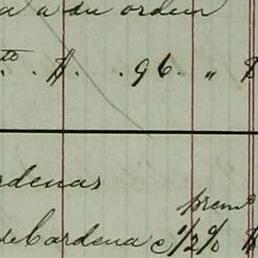 a a su orden
to $ 96 " $
rdenas
prem
de Cardenas c 1/2 % $